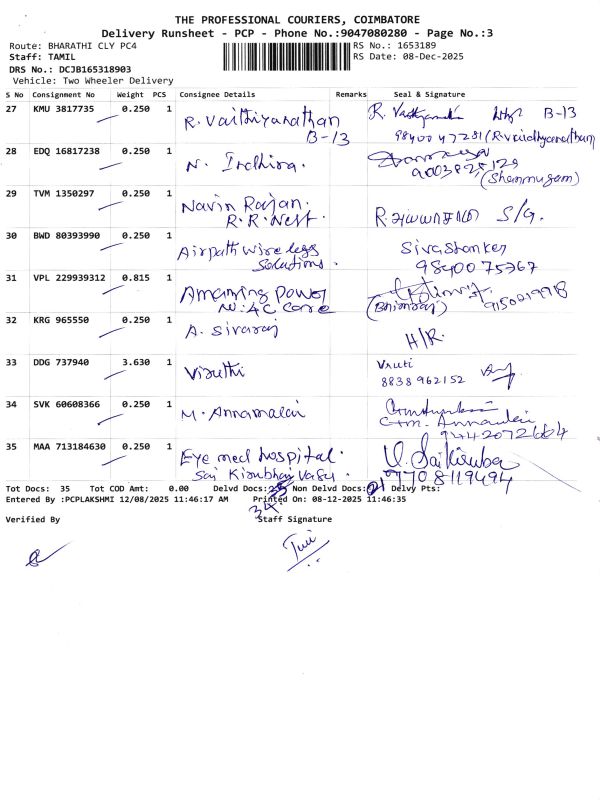 THE PROFESSIONAL COURIERS, COIMBATORE
Delivery Runsheet - PCP - Phone No.:9047080280 - Page No.:3
Route: BHARATHI CLY PC4 RS No.: 1653189
Staff: TAMIL RS Date: 08-Dec-2025
DRS No.: DCJB165318903
Vehicle: Two Wheeler Delivery
S No Consignment No Weight PCS Consignee Details Remarks Seal & Signature
27 KMU 3817735 0.250 1 R. Vaithiyanathan B-13
B-13 9840047281 (R.Vaidhyanathan)
28 EDQ 16817238 0.250 1 N. Indhira.
9003825129
(Shanmugam)
29 TVM 1350297 0.250 1 Navin Rajan.
R.R.Nest. S/G.
30 BWD 80393990 0.250 1 Airpath wireless Sivashanker
Solutions. 9840075367
31 VPL 229939312 0.815 1 Amarring Power
N: AC care (Bhimraj) 9150219918
32 KRG 965550 0.250 1 A. Sivaraj H/R.
33 DDG 737940 3.630 1 Viruthi Vruti
8838962152
34 SVK 60608366 0.250 1 M. Annamalai
35 MAA 713184630 0.250 1 Eye med hospital.
Sai Kirubhai Vasu. 9708119494
Tot Docs: 35 Tot COD Amt: 0.00 Delvd Docs: Non Delvd Docs: Delvy Pts:
Entered By :PCPLAKSHMI 12/08/2025 11:46:17 AM Printed On: 08-12-2025 11:46:35
34
Verified By Staff Signature